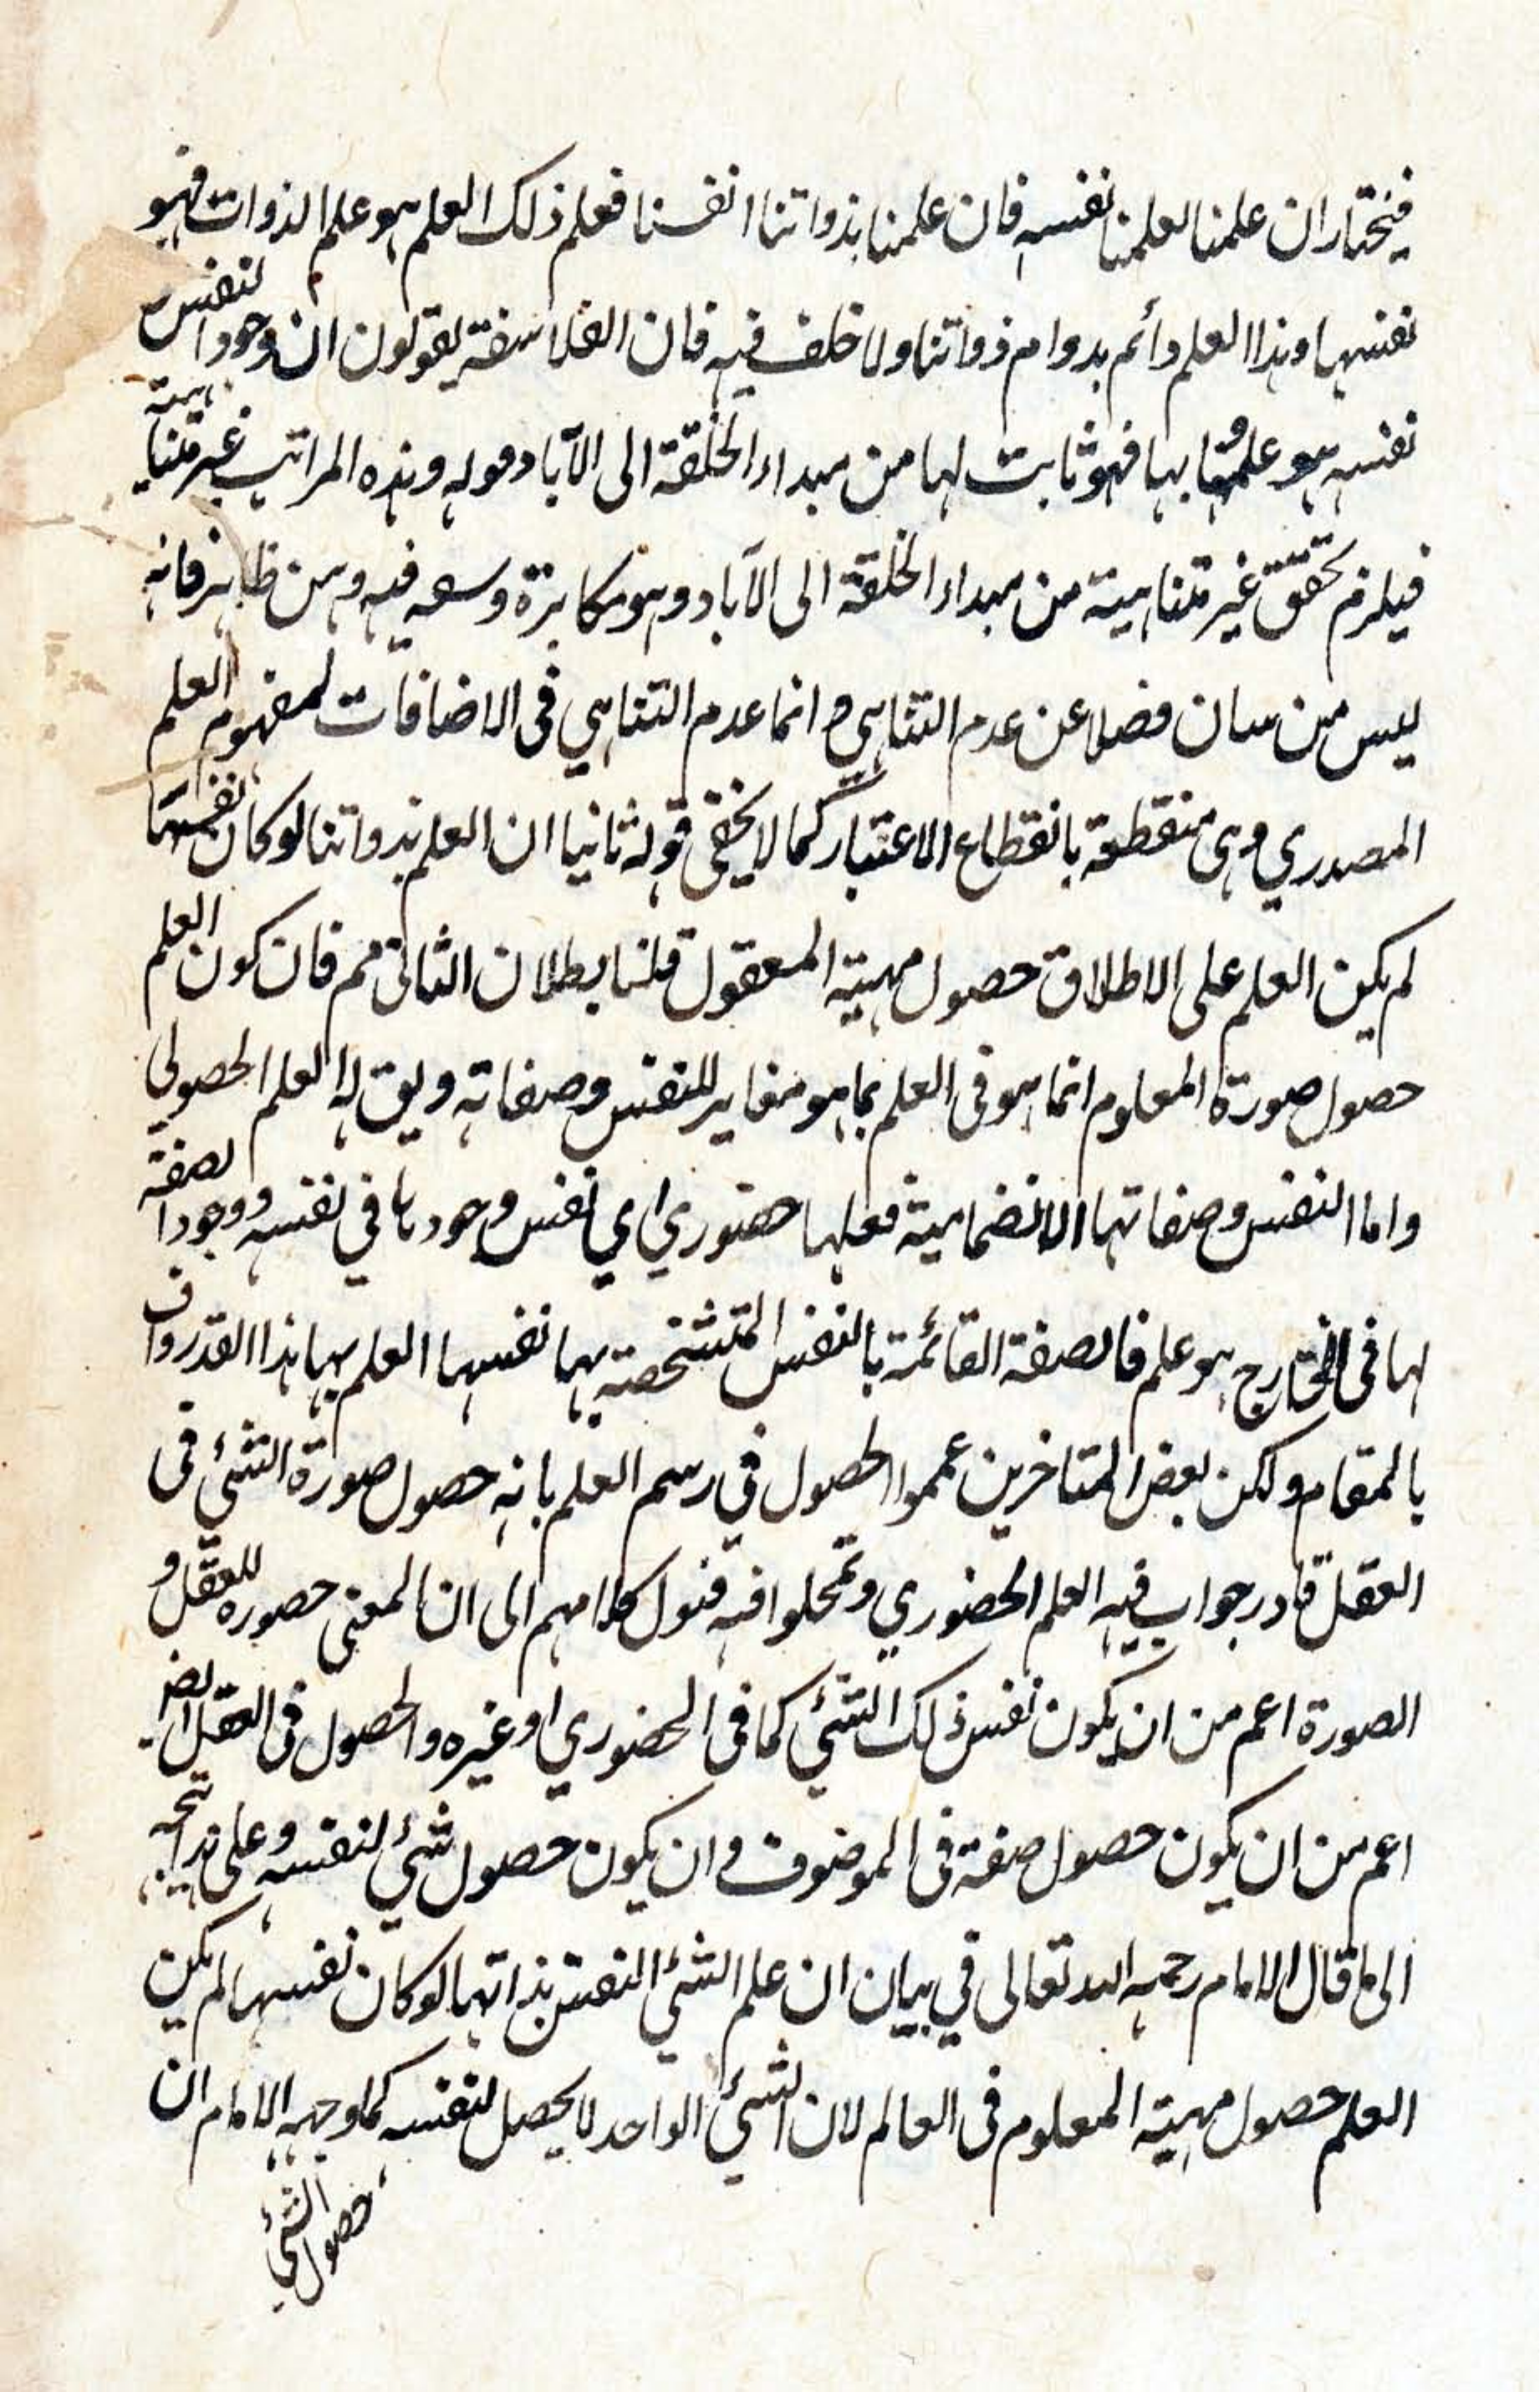 فنختار ان علمنا لعلمنا نفسه فان علمنا بذواتنا انفسنا فعلم ذلك العلم هو علم الذوات فهو
نفسها وهذا العلم دائم بدوام ذواتنا ولا خلف فيه فان الفلاسفة يقولون ان وجود النفس
نفسه هو علمها بها فهو ثابت لها من مبداء الخلقة الى الآباد قوله وهذه المراتب غير متناهية
فيلزم تحقق غير متناهية من مبداء الخلقة الى الآباد وهو مكابرة وسعه فيه وهن ظاهر فانه
ليس من سان فضلا عن عدم التناهي و انما عدم التناهي في الاضافات لمفهوم العلم
المصدري وهى منقطعة بانقطاع الاعتبار كما لا يخفى قوله ثانيا ان العلم بذواتنا لو كان نفسها
لم يكن العلم على الاطلاق حصول مهية المعقول قلنا بطلان الثانى مم فان كون العلم
حصول صورة المعلوم انما هو فى العلم بما هو مغاير للنفس وصفاته ويق له العلم الحصولى
واما النفس وصفاتها الانضمامية فعلمها حضوري اي نفس وجودها في نفسه ووجود الصفة
لها فى الخارج هو علم فالصفة القائمة بالنفس المتشخصة بها نفسها العلم بها هذا القدر واف
بالمقام ولكن بعض المتاخرين عمموا الحصول في رسم العلم بانه حصول صورة الشئ فى
العقل فادرجوا فيه العلم الحضوري وتمحلوا فيه فنول كلامهم الى ان المعنى حصوره للعقل و
الصورة اعم من ان يكون نفس ذلك الشئ كما فى الحضوري او غيره والحصول فى العقل ايضا
اعم من ان يكون حصول صفة فى الموضوف وان يكون حصول شئ لنفسه وعلى هذا يتجه
الى ما قال الامام رحمه الله تعالى في بيان ان علم الشئ النفس بذاتها لو كان نفسها لم يكن
العلم حصول مهية المعلوم فى العالم لان الشئ الواحد لا يحصل لنفسه كما وجهه الامام ان
حصول الشئ